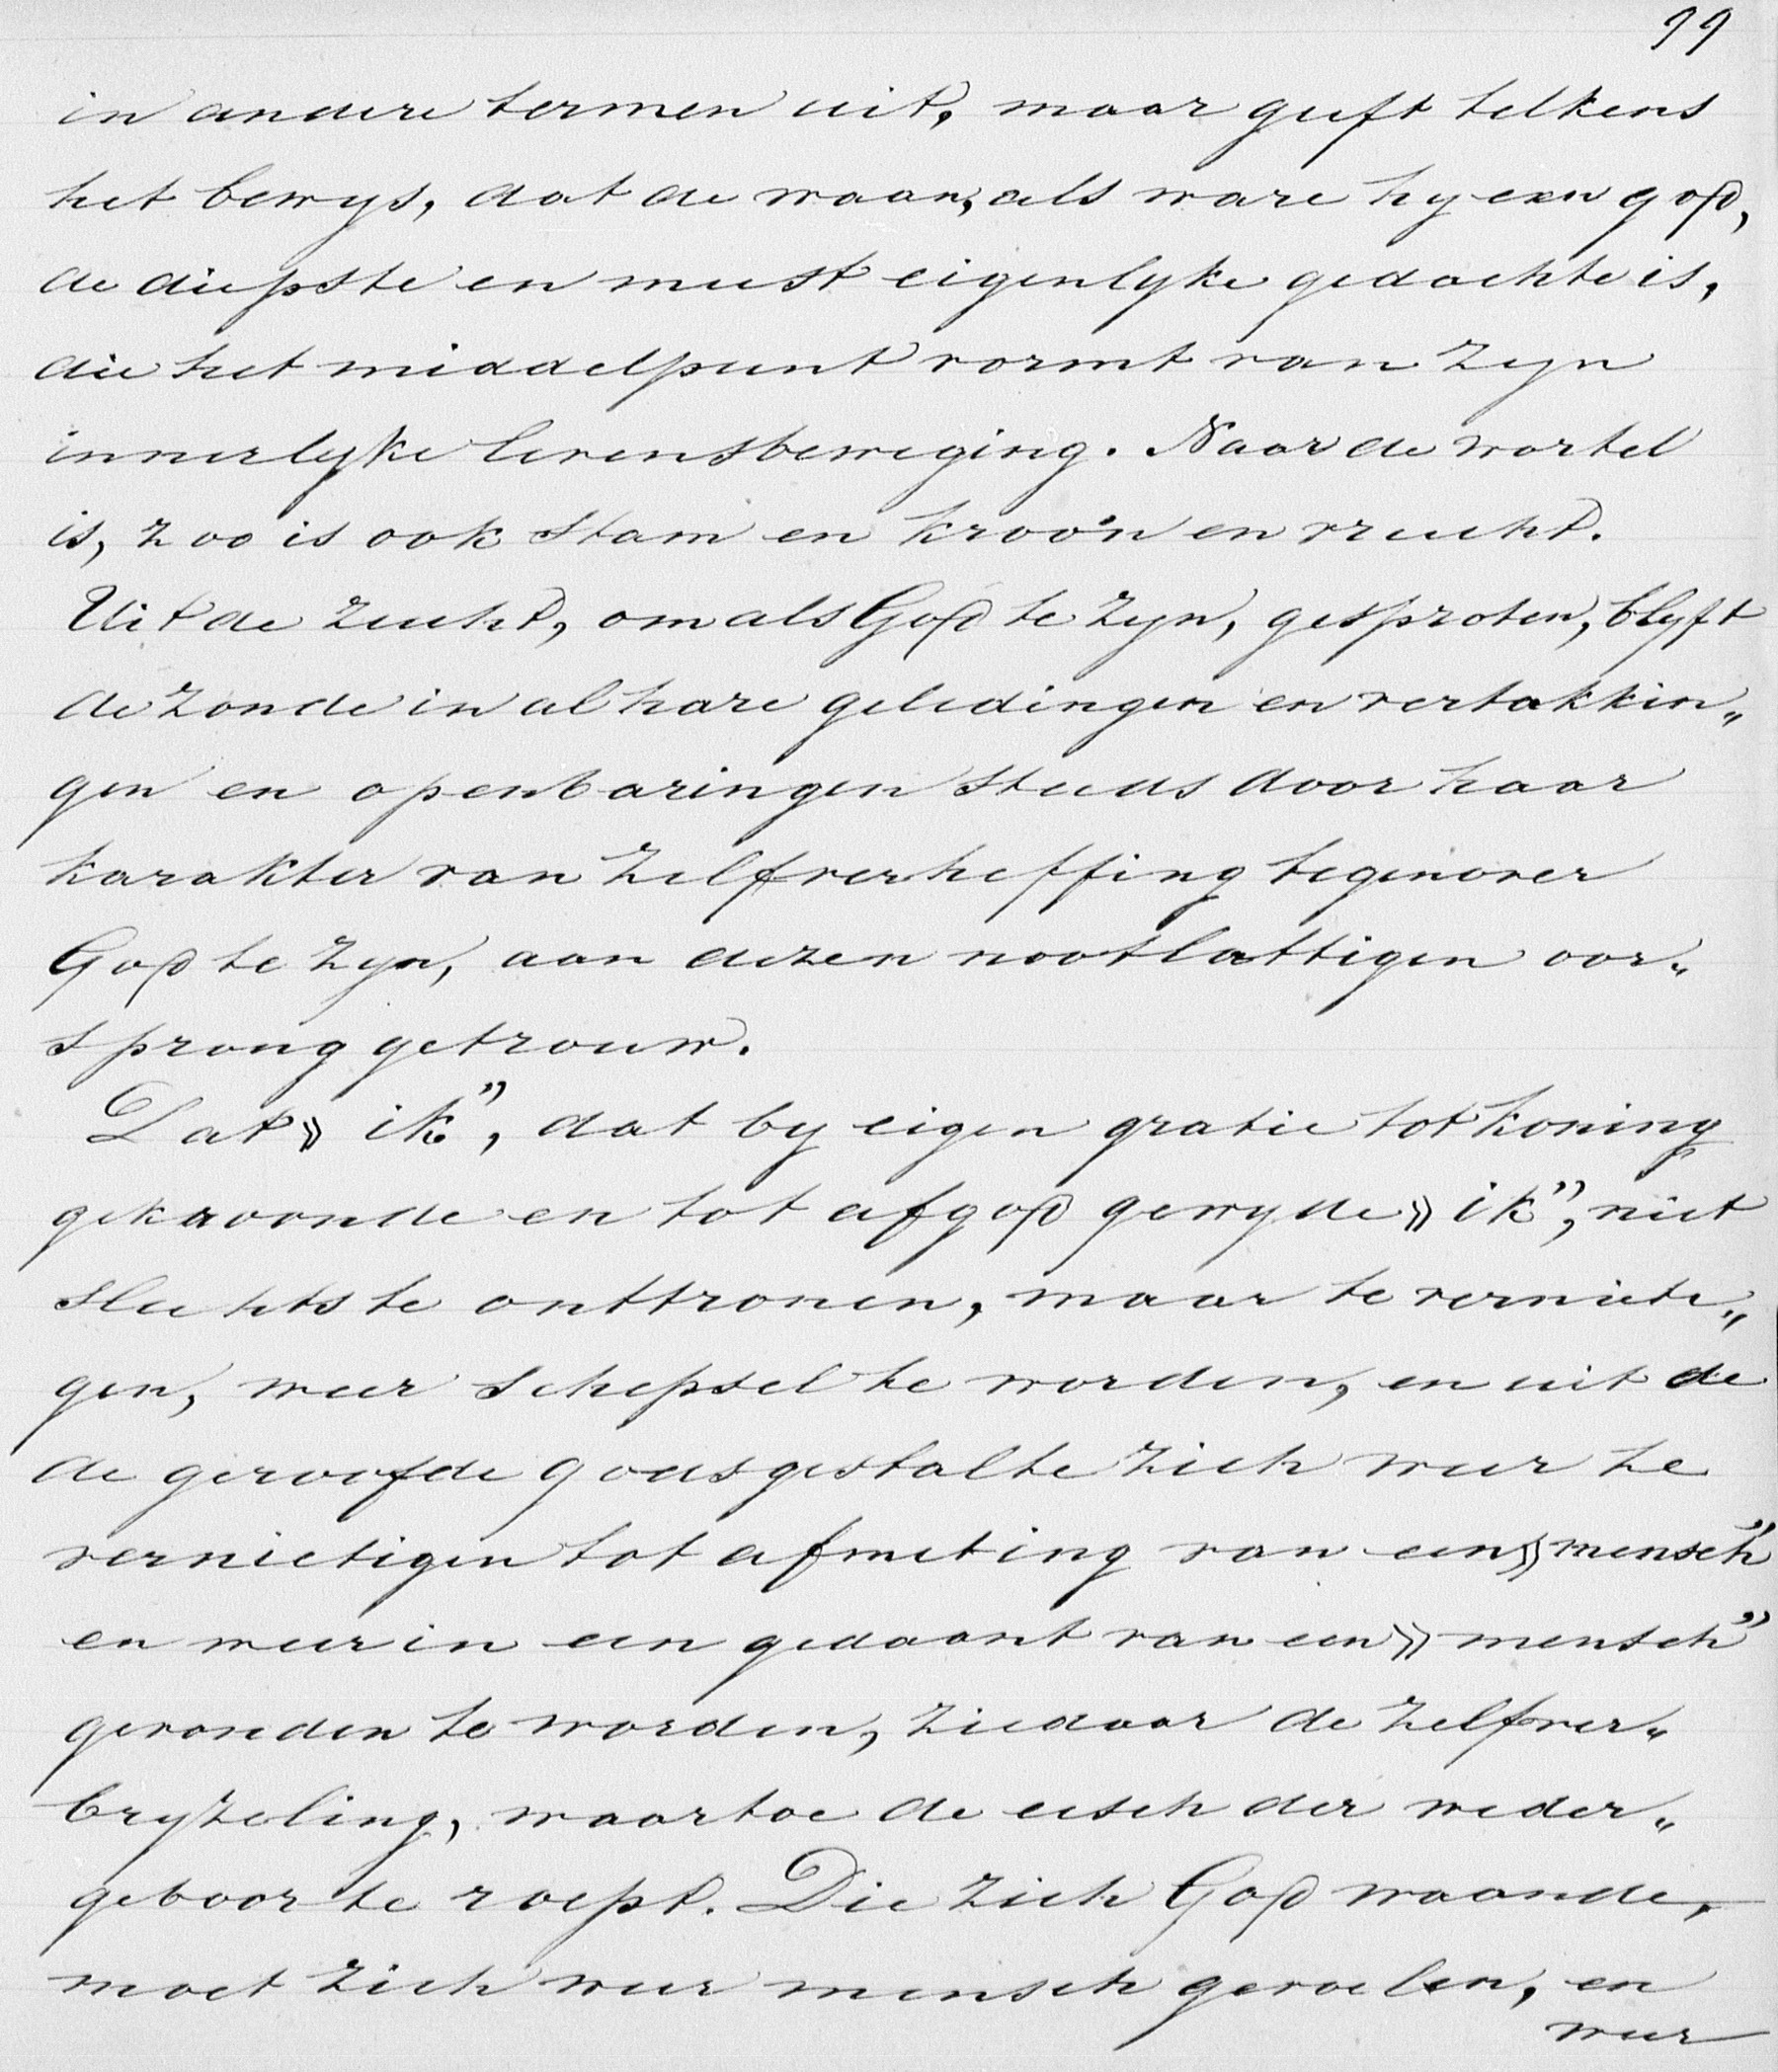 99
in andere termen uit, maar geeft telkens
het bewys, dat de waan, als ware hy een god,
de diepste en meest eigenlyke gedachte is,
die het middelpunt vormt van zyn
innerlyke levensbeweging. Naar de wortel
is, zoo is ook stam en kroon en vrucht.
Uit de zucht, om als God te zyn, gesproten, blyft
de zonde in al hare geledingen en vertakkin„
gen en openbaringen steeds door haar
karakter van zelfverheffing tegenover
God te zyn, aan dezen nootlattigen oor„
sprong getrouw.
Dat » ik”, dat by eigen gratie tot koning
gekroonde en tot afgod gewyde » ik”, niet
slechts te onttronen, maar te verniete„
gen, weer schepsel te worden, en uit de
de geroofde godsgestalte zich weer te
vernietigen tot afmeting van een » mensch”
en weer in een gedaant van een » mensch”
gevonden te worden, ziedaar de zelfver„
bryzeling, waartoe de eisch der weder„
geboorte roept. Die zich God waande,
moet zich weer mensch gevoelen, en
weer